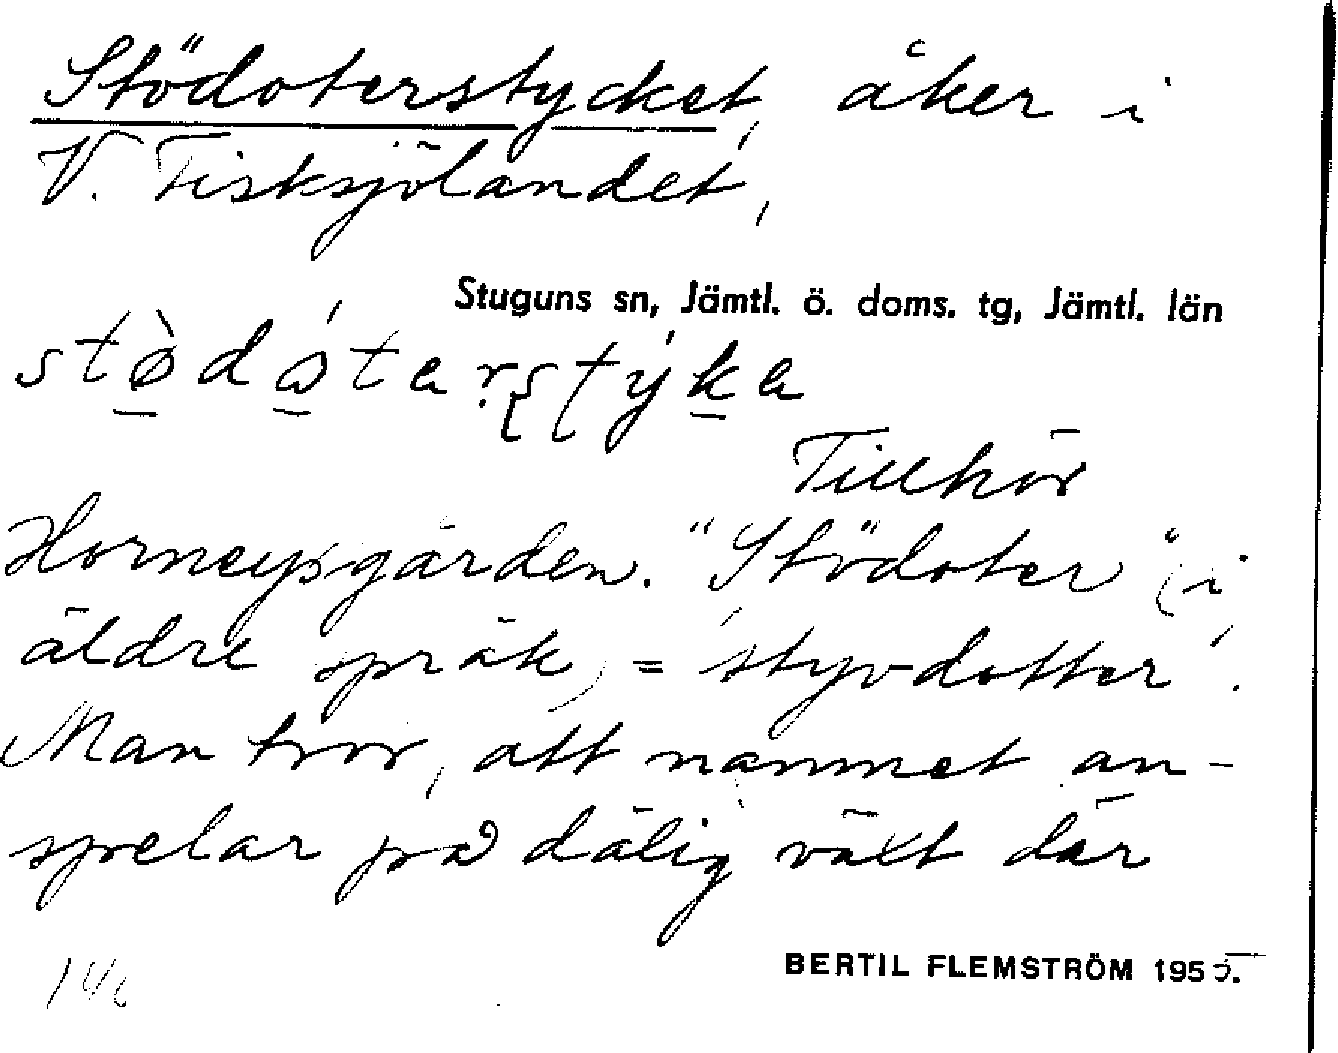 Stödoterstycket, åker i
V. Fisksjölandet,
Stuguns sn, Jämtl. ö. doms. tg, Jämtl. län
Tillhör
Horneysgården. "Stödoter" (i
äldre språk) = 'styvdotter'.
Man tror, att namnet an-
spelar på dålig växt där
BERTIL FLEMSTRÖM 1955.